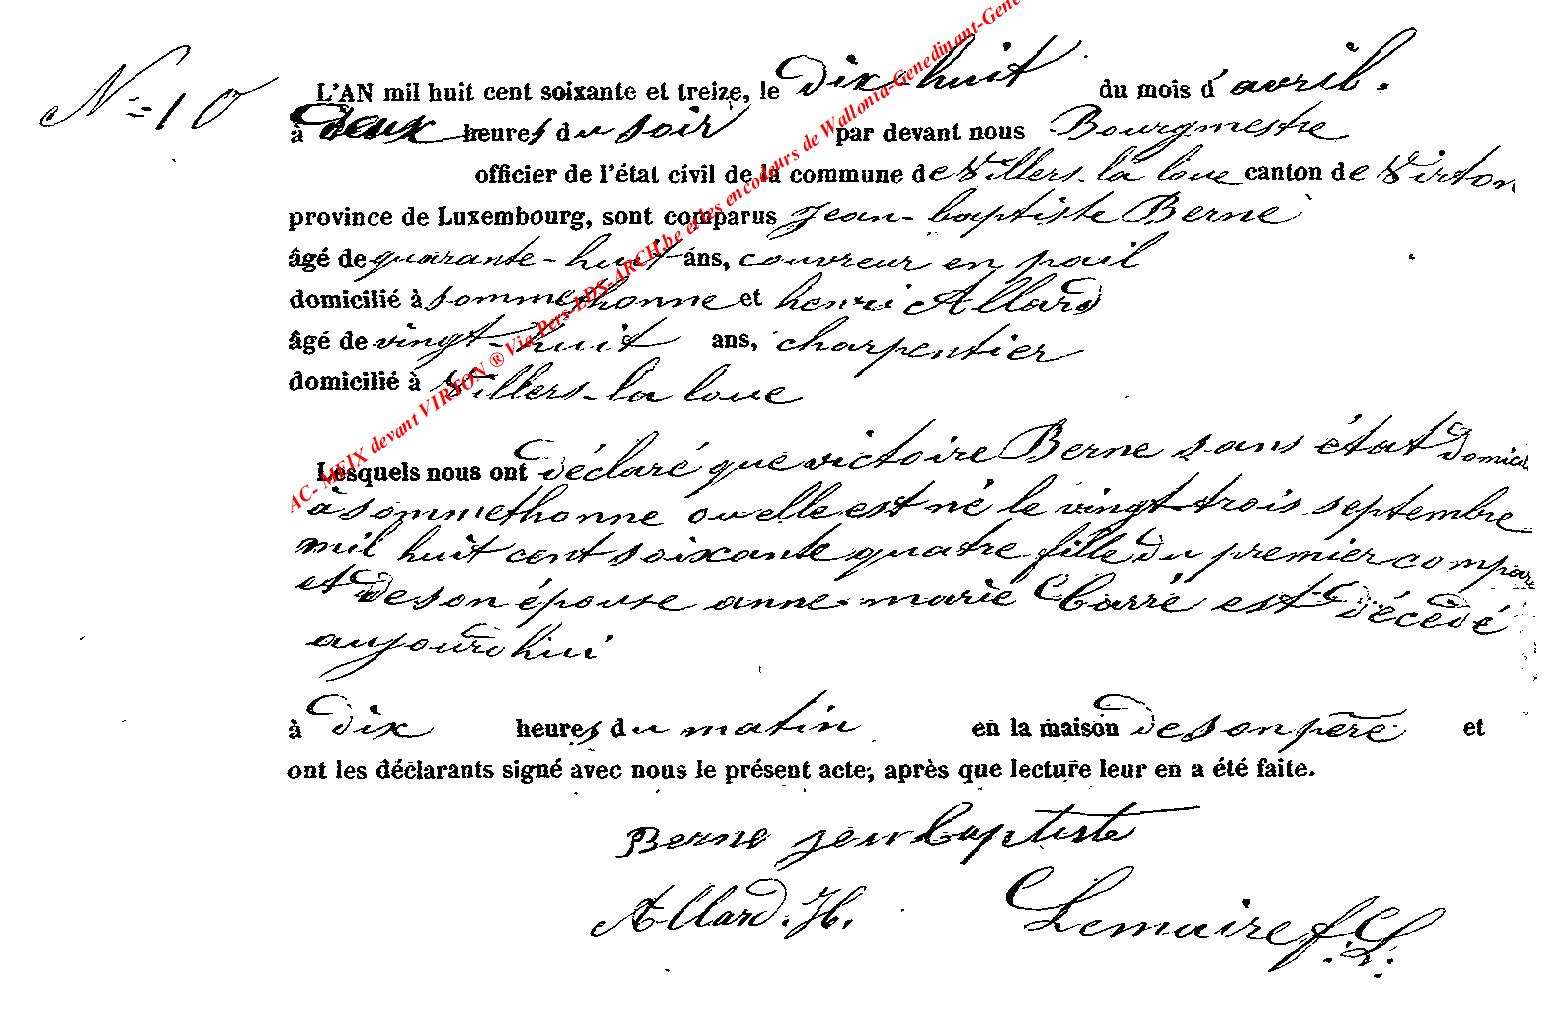 N=10
L'AN mil huit cent soixante et treize, le dix-huit du mois d'avril.
à deux heures du soir par devant nous Bourgmestre
officier de l'état civil de la commune de Villers-la loue canton de Virton
province de Luxembourg, sont comparus Jean-baptiste Berne
âgé de quarante-huit ans, couvreur en pail
domicilié à sommethonne et henri Allard
âgé de vingt-huit ans, charpentier
domicilié à Villers-la loue
Lesquels nous ont déclaré que victoire Berne sans état domicil
à sommethonne ou elle est né le vingt trois septembre
mil huit cent soixante quatre fille du premier compare
et de son épouse anne-marie Carré est décédé
aujourdhui
à dix heures du matin en la maison de son père et
ont les déclarants signé avec nous le présent acte, après que lecture leur en a été faite.
Berne jen baptiste
Allard. H. Lemaire f. L.
AC- MEIX devant VIRTON ® Via Pers-LDS-ARCH.be et les encodeurs de Wallonia-Genedinant-Gene